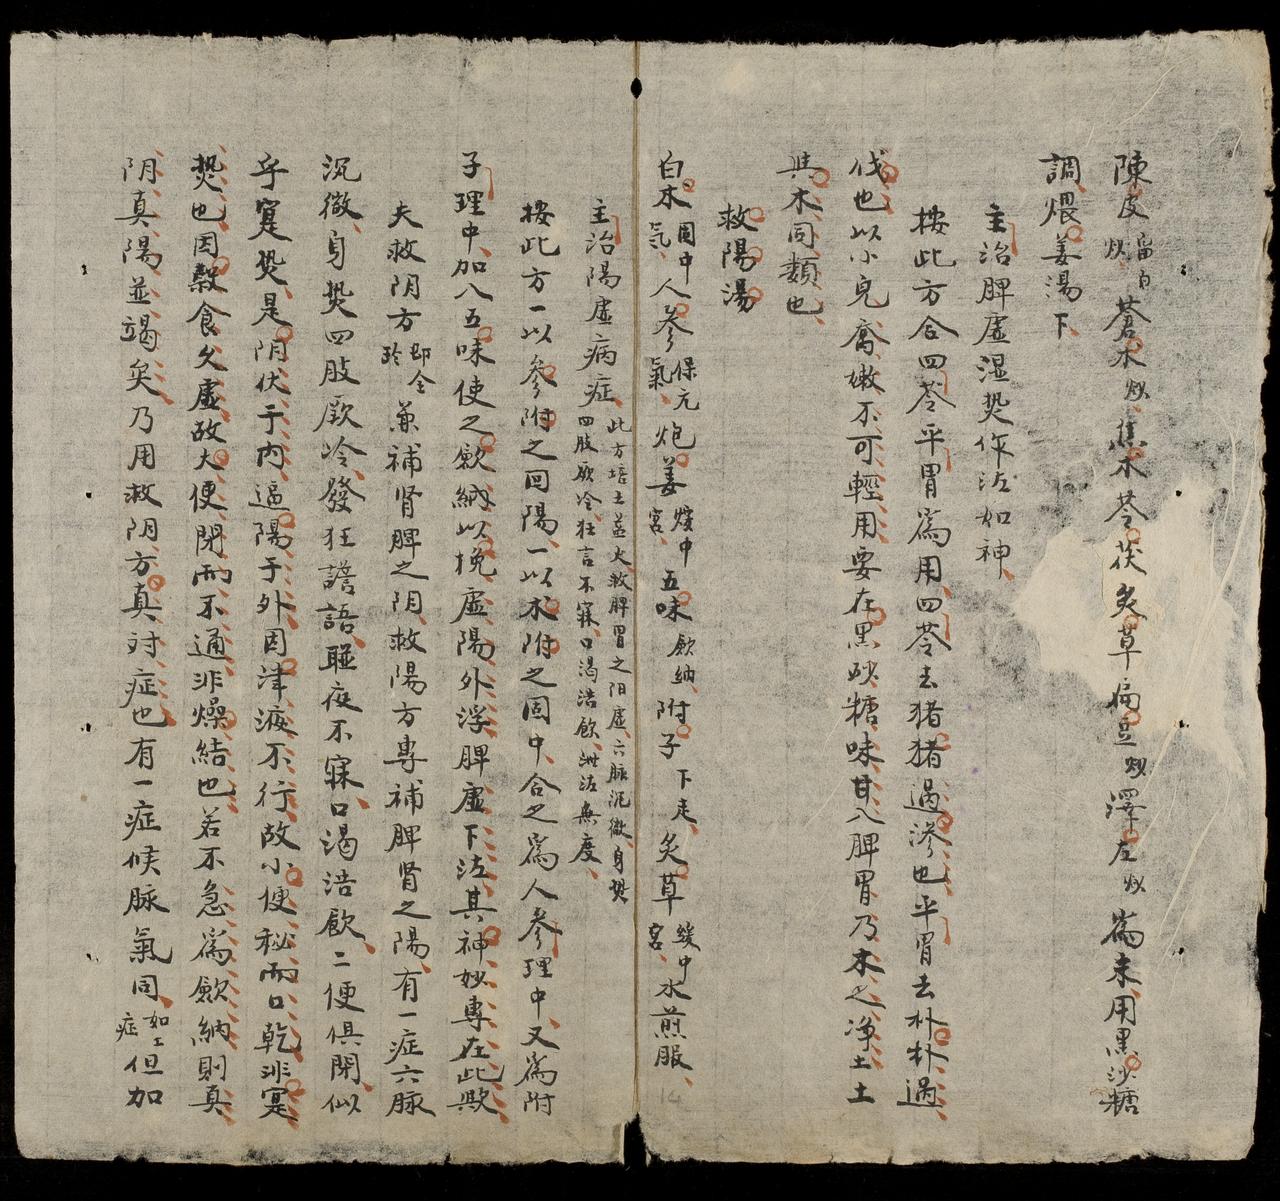 陳皮留白炒蒼朮炒焦朮苓茯炙草扁豆炒澤左炒為末用黑沙糖
調煨姜湯下
主治脾虛湿𤍠作泣如神
按此方合四苓平胃為用四苓去猪猪過滲也平胃去朴朴過
伐也以小皃喬嫩不可輕用要在黑砂糖味甘入脾胃乃木之净土土
與木同類也
救陽湯
白朮固中氣人參保元氣炮姜煖中宮五味歛納附子下走炙草緩中宮水煎服
主治陽虛病症此方培土益火救脾胃之阳虛六脉沉微身𤍠
四肢厥冷狂言不寐口渴浩飲泄泣無度
按此方一以參附之回陽一以朮附之固中合之為人參理中又為附
子理中加入五味使之歛納以挽虛陽外浮脾虛下泣其神妙專在此歟
夫救阴方即全玲兼補肾脾之阴救陽方專補脾肾之陽有一症六脉
沉微身𤍠四肢厥冷發狂譫語聣夜不寐口渴浩飲二便俱閉似
乎寔𤍠是阴伏于内逼陽于外因津液不行故小便秘而口乾非寔
𤍠也因穀食久虛故大便閉而不通非燥結也若不急為歛納則真
阴真陽並竭矣乃用救阴方真対症也有一症候脉氣同如上症但加